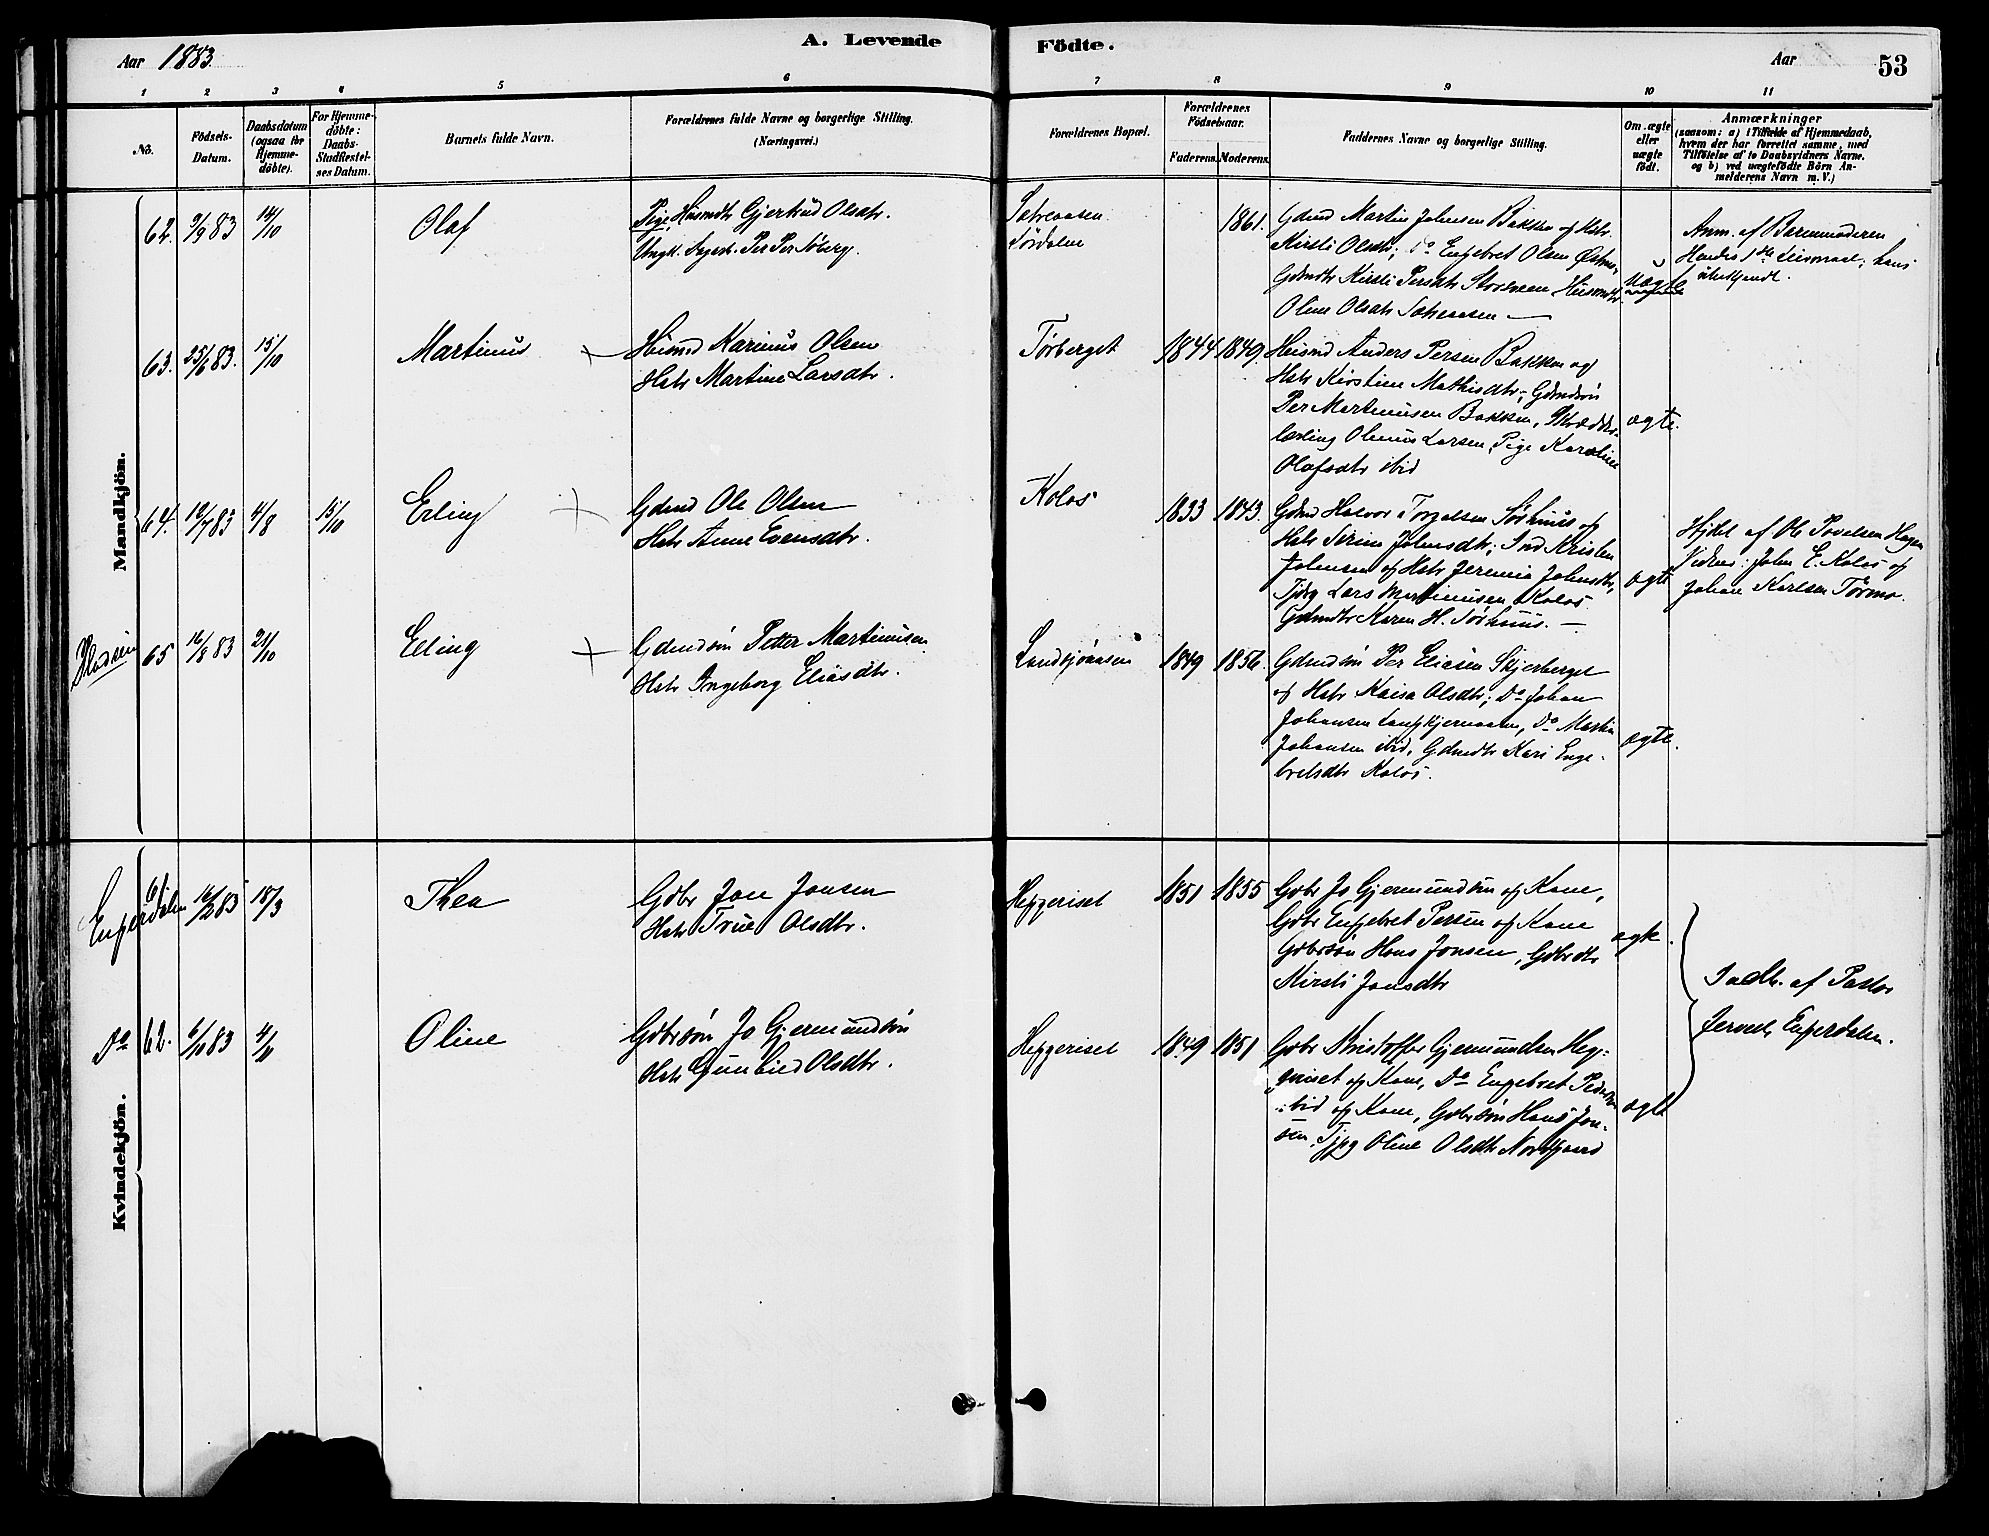 Aar 1883.
A. Levende Födte.
Aar
53
1 2 3 4 5 6 7 8 9 10 11
No.
Födsels-
Datum.
Daabsdatum
(ogsaa for
Hjemme-
döbte).
For Hjemme-
döbte:
Daabs-
Stadfæstel-
ses Datum.
Barnets fulde Navn.
Forældrenes fulde Navne og borgerlige Stilling.
(Næringsvei.)
Forældrenes Bopæl.
Forældrenes
Födselsaar.
Faderens. Moderens.
Faddernes Navne og borgerlige Stilling.
Om ægte
eller
uægte
født.
Anmærkninger
(saasom: a) i Tilfælde af Hjemmedaab,
hvem der har forrettet samme, med
Tilföielse af to Daabsvidners Navne.
og b) ved uægtefödte Börn An-
melderens Navn m. V.)
Mandkjön.
62. 9/9 83 14/10
Olaf
Pige, Husmdtr Gjertrud Olsdtr.
Ungk. Per Persøberg.
Sætreaasen
Sørdalen
1861.
Gdmd Martin Johnsen Bakken og Hstr.
Kirsti Olsdtr; Do Engebret Olsen
Gdmdtr Kirsti Persdtr Storveen, Husmdtr.
Oline Olsdtr Sætreaasen
uægte
Anm. af Barnemoderen
Hendes 1ste Leiermaal; hans
ubekjendt.
63. 25/6 83. 15/10
Martinus
Husmd Karinus Olsen
Hstr Martine Larsdtr.
Tørberget
1844 1849.
Husmd Anders Persen Bakken og
Hstr Kirstine Mathisdtr; Gdmdsøn
Per Martinusen Bakken,
lærling Olinus Larsen, Pige Karoline
Olafsdtr ibid
ægte.
64. 19/7 83 4/8 15/10
Erling
Gdmd Ole Olsen
Hstr Anne Evensdtr.
Kolos
1833 1843.
Gdmd Halvor Torgelsen Sørhuus og
Hstr Serine Johnsdtr; Ind Kristen
Johnsen og Hstr Jeremia Johnsdtr,
Tjdrg Lars Martinusen Kolos.
Gdmdtr Karen H. Sørhuus.
ægte
Hjdbt af Ole Povelsen Hagen
Vidner: John E. Kolos og
Johan Karlsen Tørmo.
65 16/8 83 21/10
Erling
Gdmdsøn Petter Martinusen
Hstr Ingeborg Eliasdtr.
Landsjøaasen
1849 1856.
Gdmdsøn Per Eliasen Skjerberget
og Hstr Kaisa Olsdtr; Do Johan
Johansen Langkjernaasen, Do Martin
Johansen ibid, Gdmdtr Kari Enge-
bretsdtr Kolos.
ægte.
Kvindekjön.
Engerdalen 61. 16/2 83 18/3
Thea
Gdbr Jon Jonsen
Hstr True Olsdtr.
Heggeriset
1851 1855
Gdbr Jo Gjermundsøn og Kone,
Gdbr Engebret Persen og Kone
Gdbrsøn Hans Jonsen, Gdbrdtr
Kirsti Jonsdtr
ægte.
Indb. af Pastor
Engerdalen.
Do 62. 6/10 83
Oline
Gdbrsøn Jo Gjermundsøn
Hstr Gunhild Olsdtr.
Heggeriset
1849 1851
Gdbr Kristoffer Gjermundsen Heg-
geriset og Kone, Do Engebret Pedersen
ibid og Kone, Gdbrsøn Hans Jon-
sen, Tjpg Oline Olsdtr Nordgaard
ægte